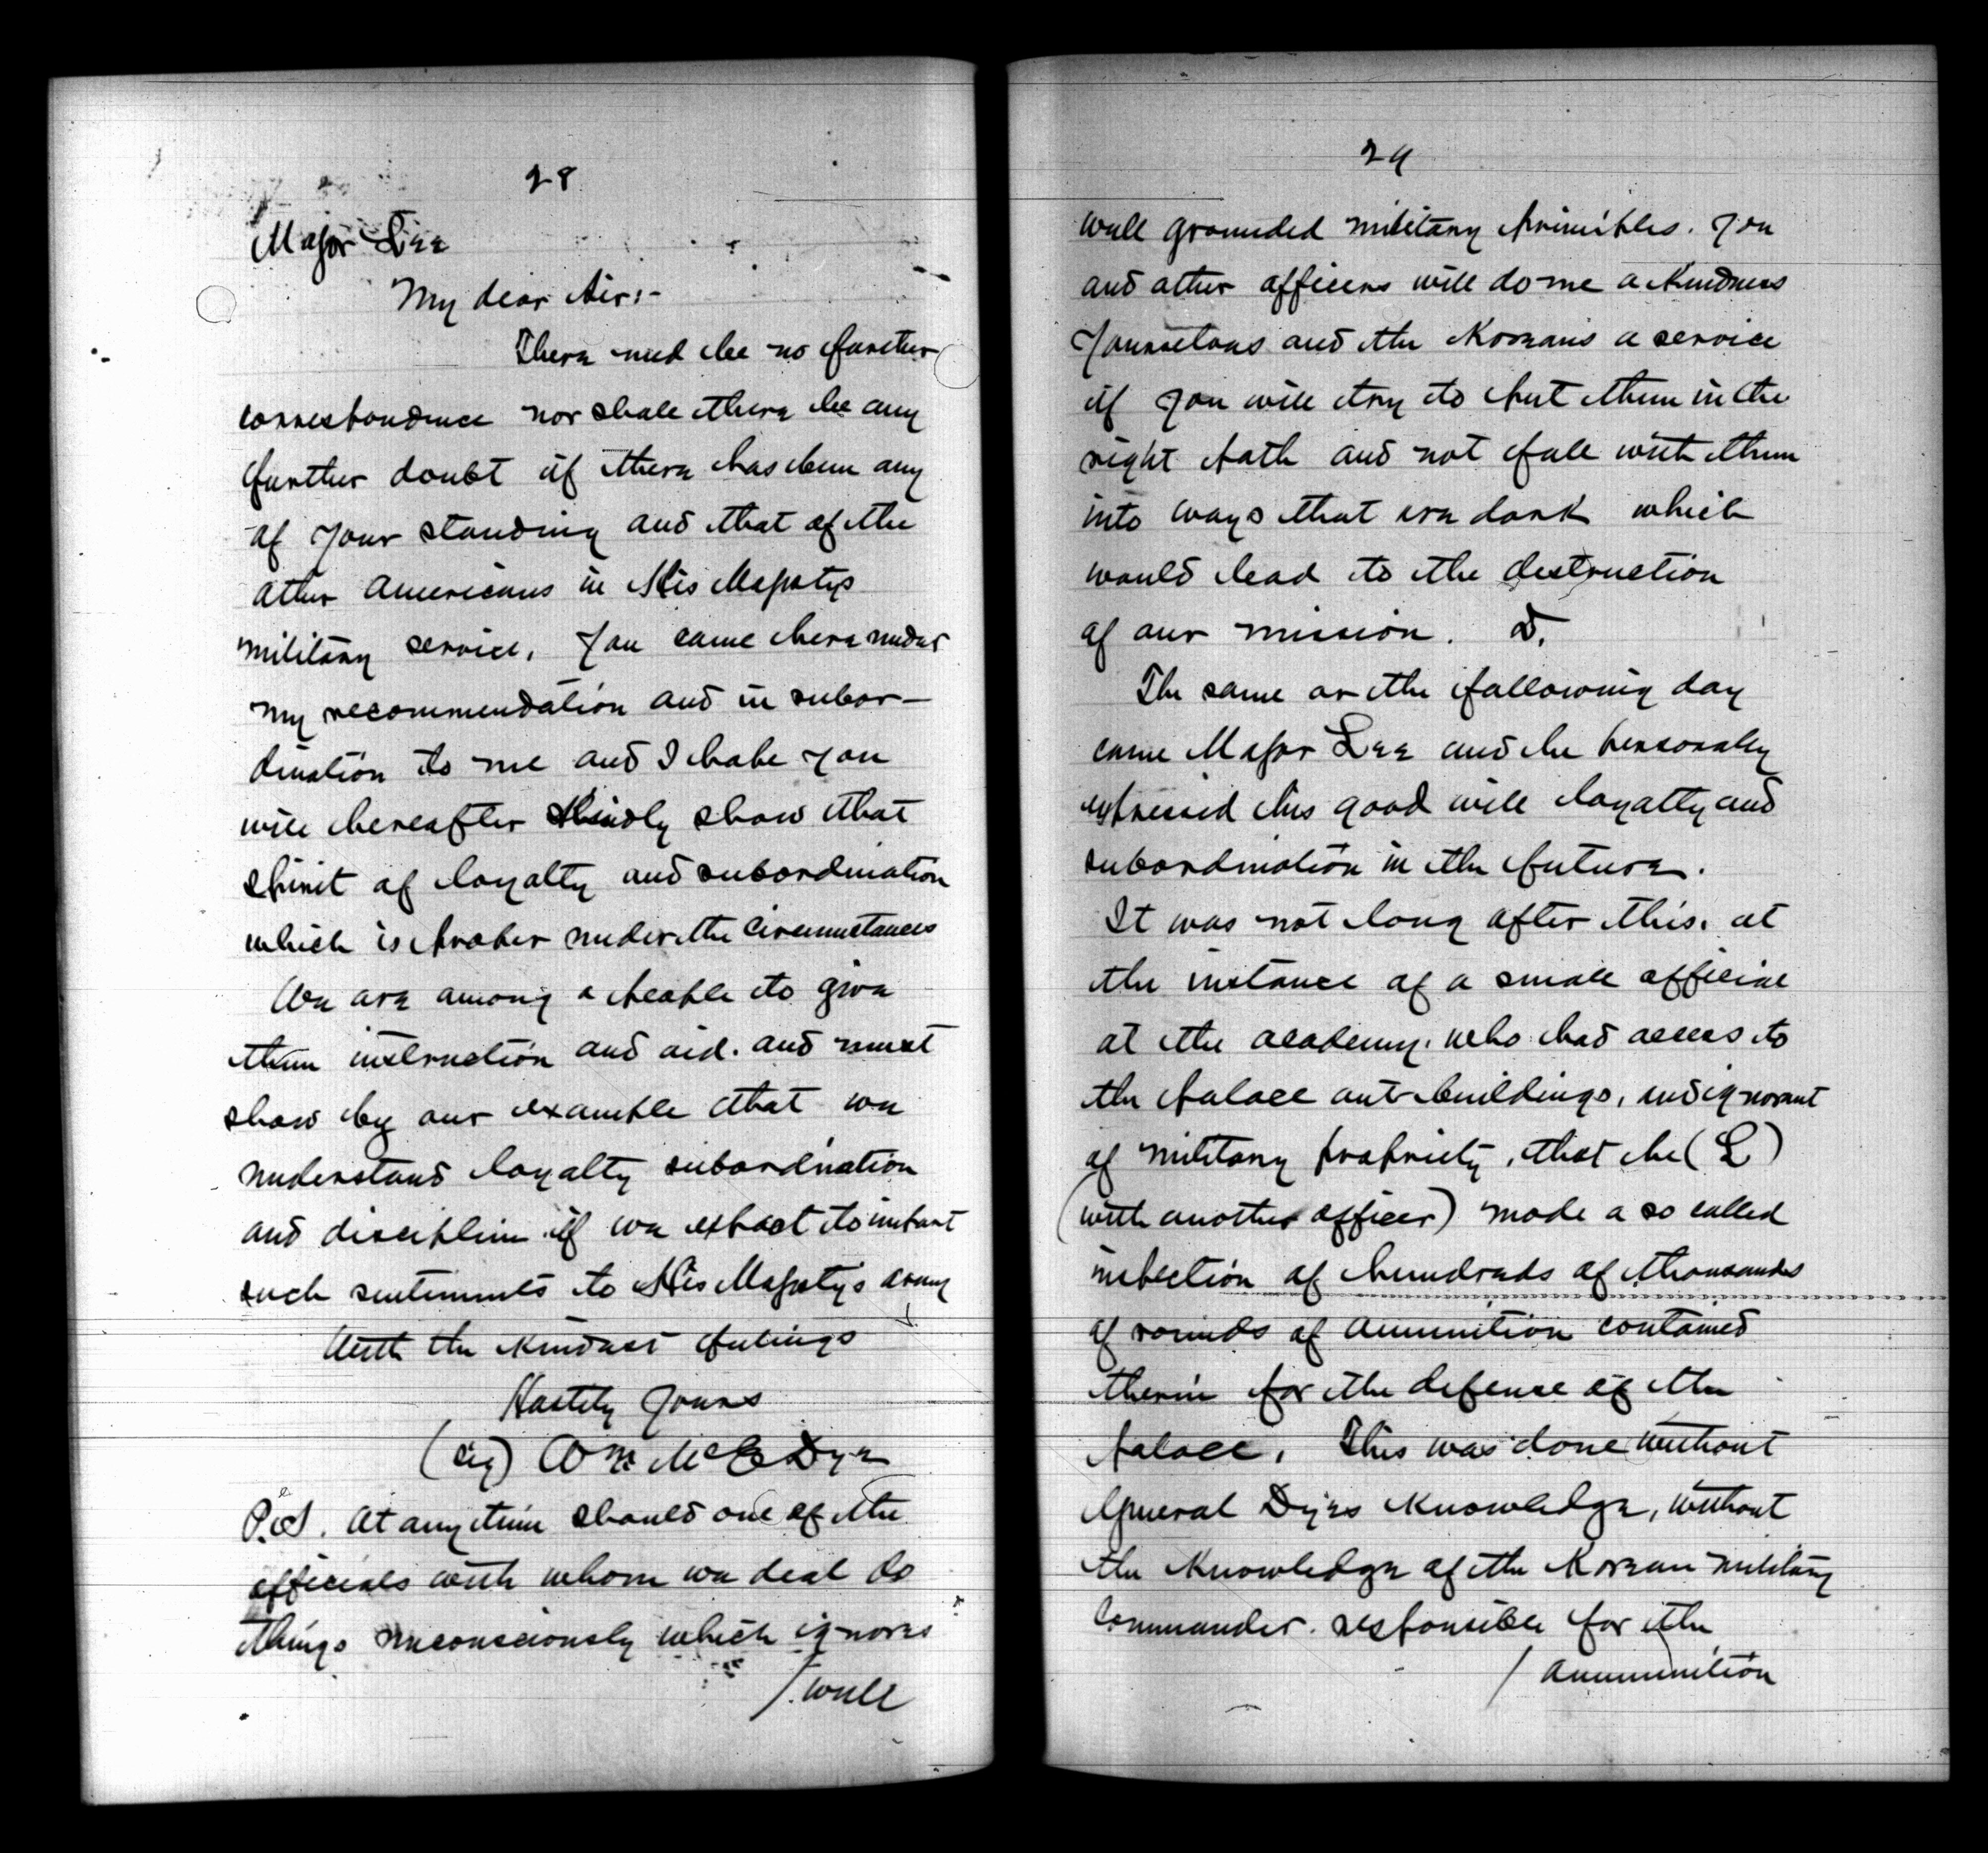 28
Major Lee
My dear Sir:-
There need be no further
correspondence nor shall there be any
further doubt if there has been any
of your standing and that of the
other Americans in His Majestys
military service. You came here under
my recommendation and in subor-
dination to me and I hope you
will hereafter kindly show that
spirit of loyalty and subordination
which is proper under the circumstances
We are among a people to give
them instruction and aid. and must
show by our example that we
understand loyalty subordination
and discipline if we expect to impart
such sentiments to His Majesty's army
With the kindest feelings
Hastily Yours
(sig) Wm McE Dye
P.S. At any time should one of the
officials with whom we deal do
things unconsciously which ignores
/. well
29
well grounded military principles. You
and other officers will do me a kindness
Yourselves and the Koreans a service
if you will try to put them in the
right path and not fall with them
into ways that are dark which
would lead to the destruction
of our mission. D.
The same or the following day
came Major Lee and he personally
expressed his good will loyalty and
subordination in the future.
It was not long after this. at
the instance of a small official
at the academy. who had access to
the Palace out-buildings, and ignorant
of military propriety, that he (L)
(with another officer) made a so called
inspection of hundreds of thousands
of rounds of ammunition contained
therein for the defense of the
Palace. This was done without
General Dyes knowledge, without
the knowledge of the Korean military
Commander. responsible for the
/ ammunition